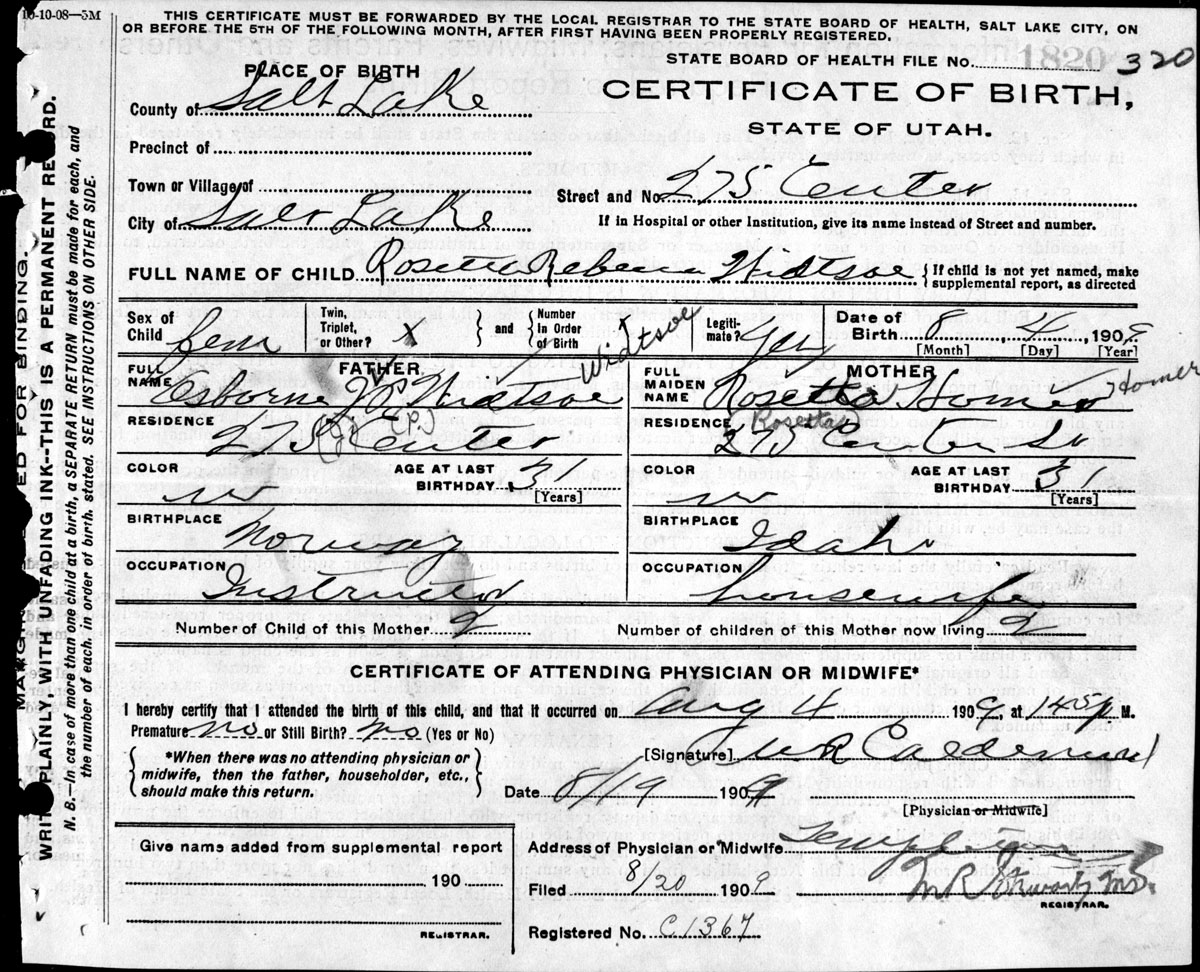 10-10-08—5M
THIS CERTIFICATE MUST BE FORWARDED BY THE LOCAL REGISTRAR TO THE STATE BOARD OF HEALTH, SALT LAKE CITY, ON
OR BEFORE THE 5TH OF THE FOLLOWING MONTH, AFTER FIRST HAVING BEEN PROPERLY REGISTERED.
STATE BOARD OF HEALTH FILE No. 1820 320
PLACE OF BIRTH
CERTIFICATE OF BIRTH,
STATE OF UTAH.
County of Salt Lake
Precinct of
Town or Village of
Street and No. 275 Center
City of Salt Lake
If in Hospital or other Institution, give its name instead of Street and number.
FULL NAME OF CHILD Rosetta Rebecca Widtsoe { If child is not yet named, make supplemental report, as directed
Sex of Child fem
Twin, Triplet, or Other? X } and { Number In Order of Birth
Legitimate? Yes
Date of Birth 8 4 1909
[Month] [Day] [Year]
Widtsoe
FATHER
FULL NAME Osborne J P Widtsoe
(J.) (P.)
RESIDENCE 275 Center
COLOR w
AGE AT LAST BIRTHDAY 31 [Years]
BIRTHPLACE Norway
OCCUPATION Instructor
MOTHER
FULL MAIDEN NAME Rosetta Homer
Homer
(Rosetta)
RESIDENCE 275 Center St
COLOR w
AGE AT LAST BIRTHDAY 31 [Years]
BIRTHPLACE Idaho
OCCUPATION housewife
Number of Child of this Mother 2
Number of children of this Mother now living 2
CERTIFICATE OF ATTENDING PHYSICIAN OR MIDWIFE*
I hereby certify that I attended the birth of this child, and that it occurred on Aug 4 1909, at 145 p M.
Premature no or Still Birth? no (Yes or No)
{ *When there was no attending physician or
midwife, then the father, householder, etc.,
should make this return. }
[Signature]
Date 8/19 1909
[Physician or Midwife]
Address of Physician or Midwife Templeton
Filed 8/20 1909
REGISTRAR.
Registered No. C1367
Give name added from supplemental report
190
REGISTRAR.
MARGIN RESERVED FOR BINDING.
WRITE PLAINLY, WITH UNFADING INK--THIS IS A PERMANENT RECORD.
N. B.—In case of more than one child at a birth, a SEPARATE RETURN must be made for each, and
the number of each, in order of birth, stated. SEE INSTRUCTIONS ON OTHER SIDE.